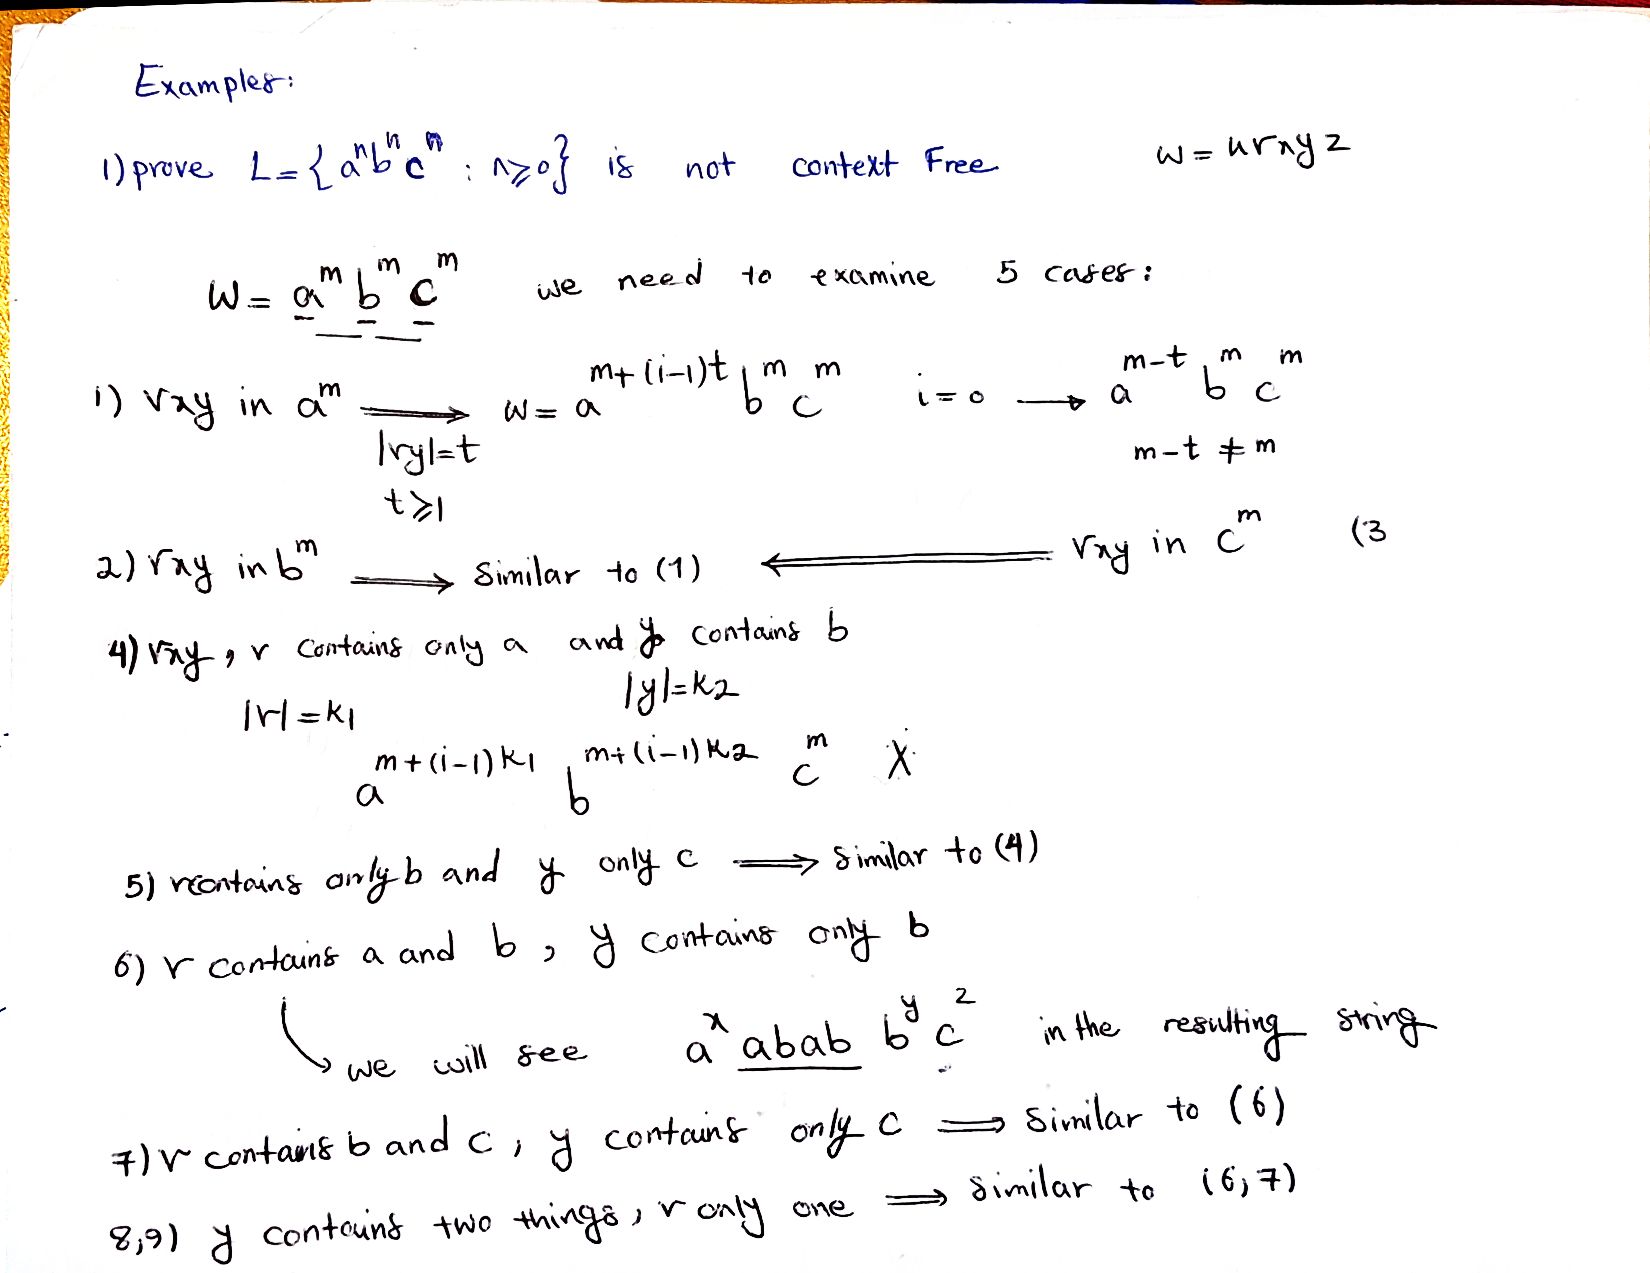 Examples:
1) prove L = {aⁿbⁿcⁿ : n ≥ 0} is not context Free
w = uvxyz
W = aᵐ bᵐ cᵐ we need to examine 5 cases:
1) vxy in aᵐ ⟹ w = a^(m+(i-1)t) bᵐ cᵐ i = 0 → a^(m-t) bᵐ cᵐ
|vy| = t m-t ≠ m
t ≥ 1
2) vxy in bᵐ ⟹ Similar to (1) ⟸ vxy in cᵐ (3
4) vxy, v contains only a and y contains b
|v| = k1 |y| = k2
a^(m+(i-1)k1) b^(m+(i-1)k2) cᵐ X
5) v contains only b and y only c ⟹ Similar to (4)
6) v contains a and b, y contains only b
we will see aˣ abab bʸ cᶻ in the resulting string
7) v contains b and c, y contains only c ⟹ Similar to (6)
8,9) y contains two things, v only one ⟹ Similar to (6,7)